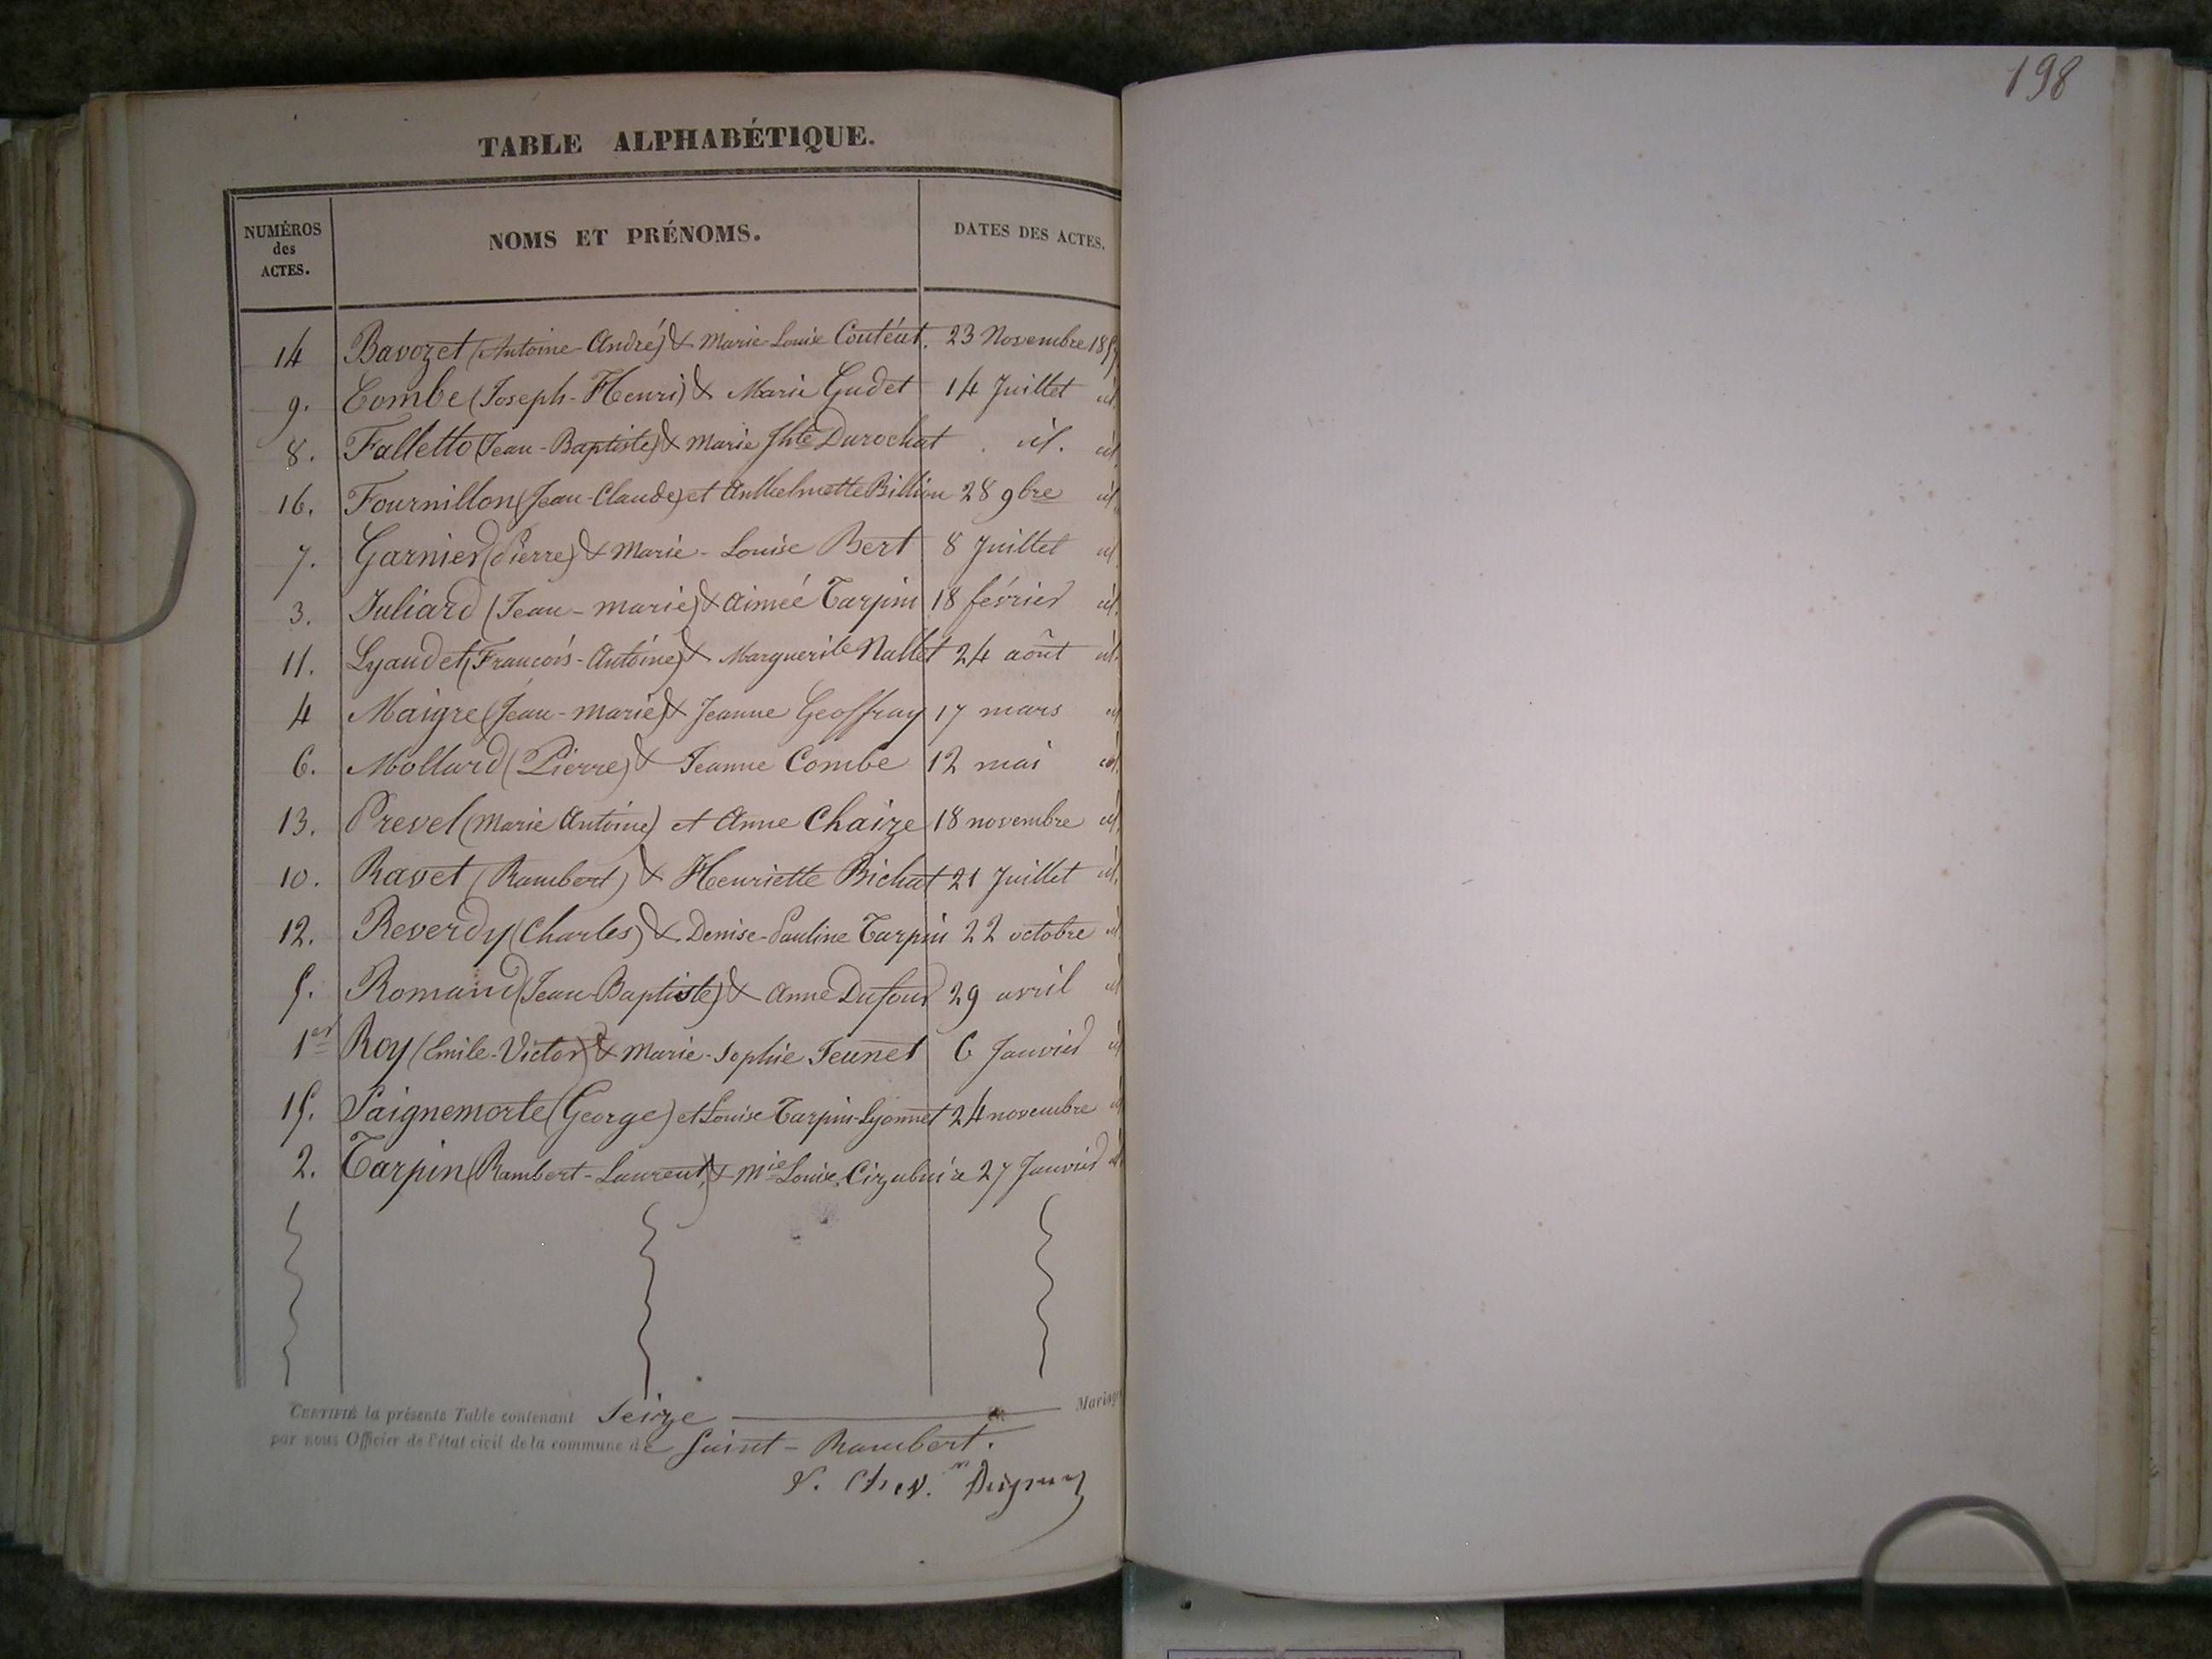 198
TABLE ALPHABÉTIQUE.
NUMÉROS des ACTES. NOMS ET PRÉNOMS. DATES DES ACTES.
14 Bavozet (Antoine-André) & Marie-Louise Coutéat. 23 Novembre
9. Combe (Joseph-Henri) & Marie Gudet 14 Juillet id.
8. Falletto (Jean-Baptiste) & Marie Jhte Durochat . id. id.
16. Fournillon (Jean-Claude) et Anthelmette Billion 28 9bre id.
7. Garnier (Pierre) & Marie-Louise Bert 8 Juillet id
3. Juliard (Jean-marie) & Aimée Tarpin 18 février id.
11. Lyaudet (François-Antoine) & Marguerite Nallet 24 août id.
4 Maigre (Jean-marie) & Jeanne Geoffray 17 mars id
6. Mollard (Pierre) & Jeanne Combe 12 mai id.
13. Prevel (Marie Antoine) et Anne Chaize 18 novembre id.
10. Ravet (Rambert) & Henriette Bichat 21 Juillet id.
12. Reverdy (Charles) & Denise-Pauline Tarpin 22 octobre id
5. Romand (Jean-Baptiste) & Anne Dufour 29 avril id
1er Roy (Emile-Victor) & Marie-Sophie Jeunet 6 Janvier id
15. Saignemorte (George) et Louise Tarpin-Lyonnet 24 novembre id
2. Tarpin (Rambert-Laurent) & Mie Louise 27 Janvier id
CERTIFIÉ la présente Table contenant Seize Mariage
par nous Officier de l'état civil de la commune de Saint-Rambert.